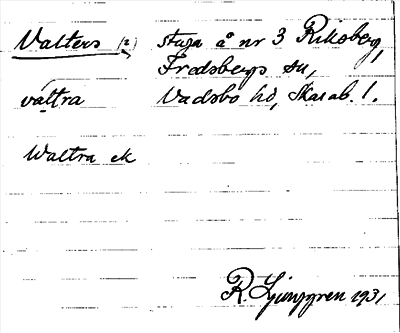 Valters (2) stuga å nr 3 Riksberg,
Fredsbergs sn,
váltra Vadsbo hd, Skarab. l.
Waltra ek
R. Ljunggren 1931